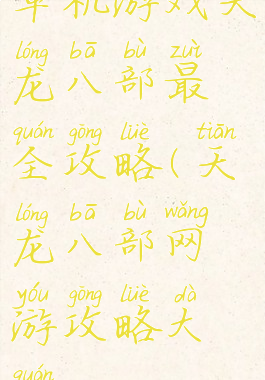 单机游戏天
lóng bā bù zuì
龙八部最
quán gōng lüè tiān
全攻略(天
lóng bā bù wǎng
龙八部网
yóu gōng lüè dà
游攻略大
quán